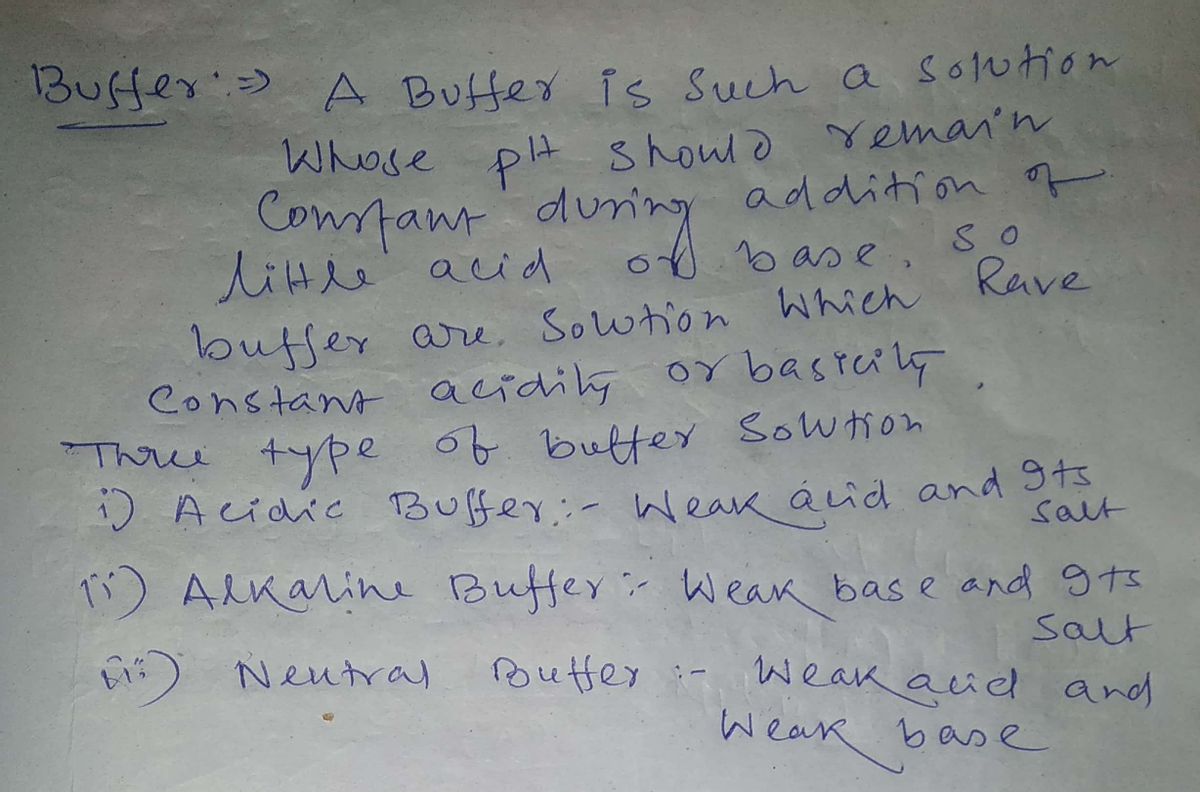 Buffer :⇒ A Buffer is Such a solution
Whose pH should remain
Constant during addition of
little acid or base. so
buffer are. Solution which have
Constant acidity or basicity.
Three type of buffer Solution
i) Acidic Buffer :- Weak acid and Its
salt
ii) Alkaline Buffer :- Weak base and Its
Salt
iii) Neutral Buffer :- Weak acid and
Weak base